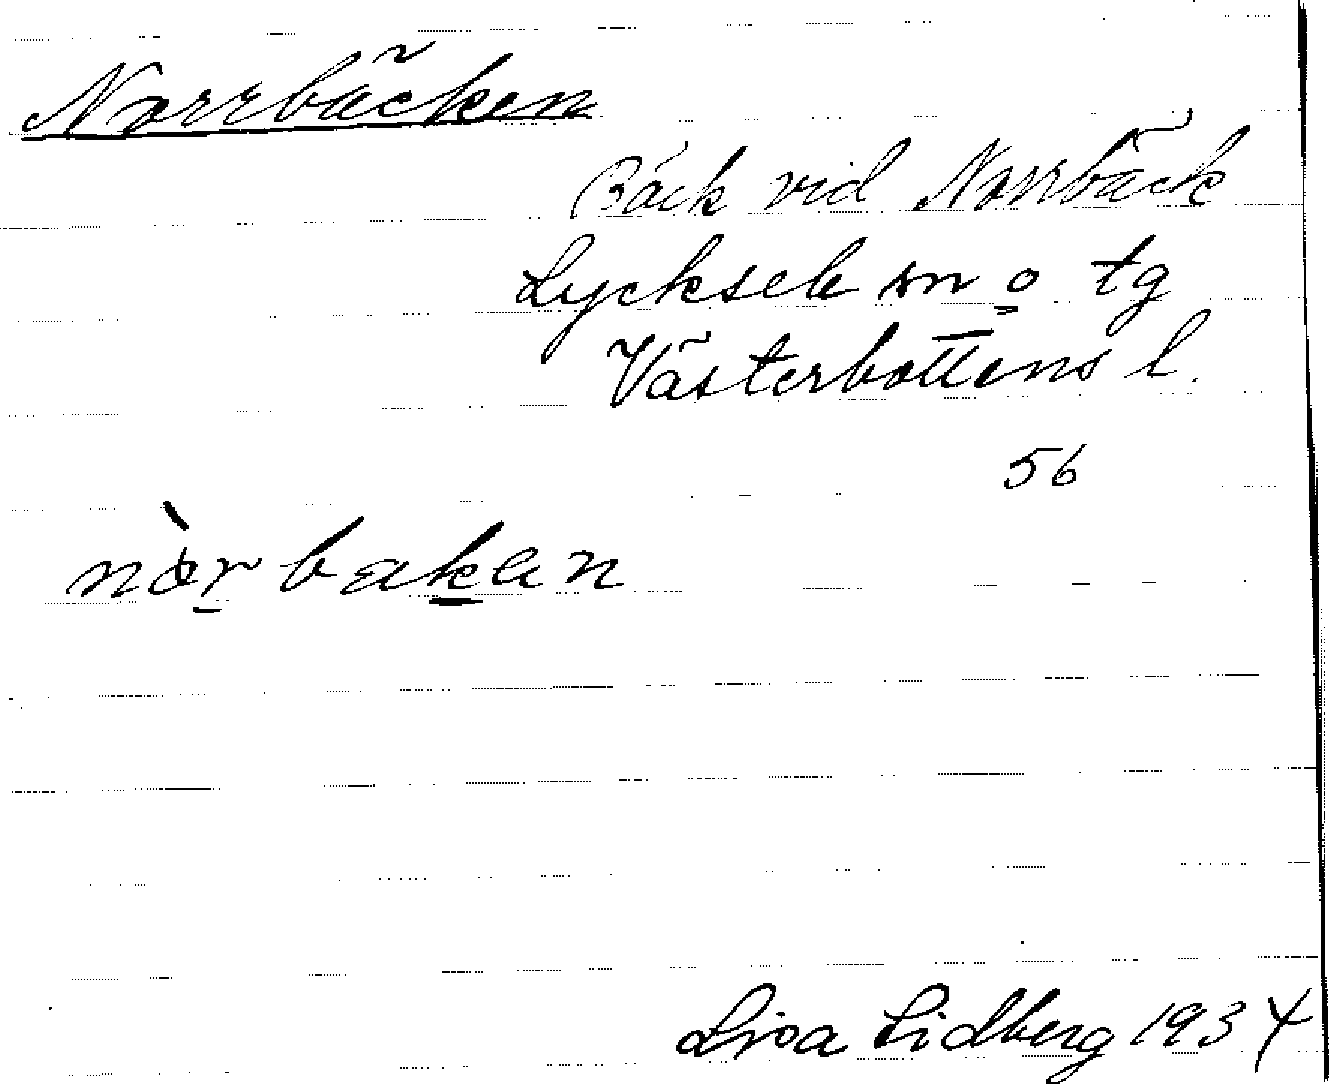 Norrbäcken
Bäck vid Norrbäck
Lycksele sn o tg
Västerbottens l.
56
nòrbäken
Lisa Lidberg 1934